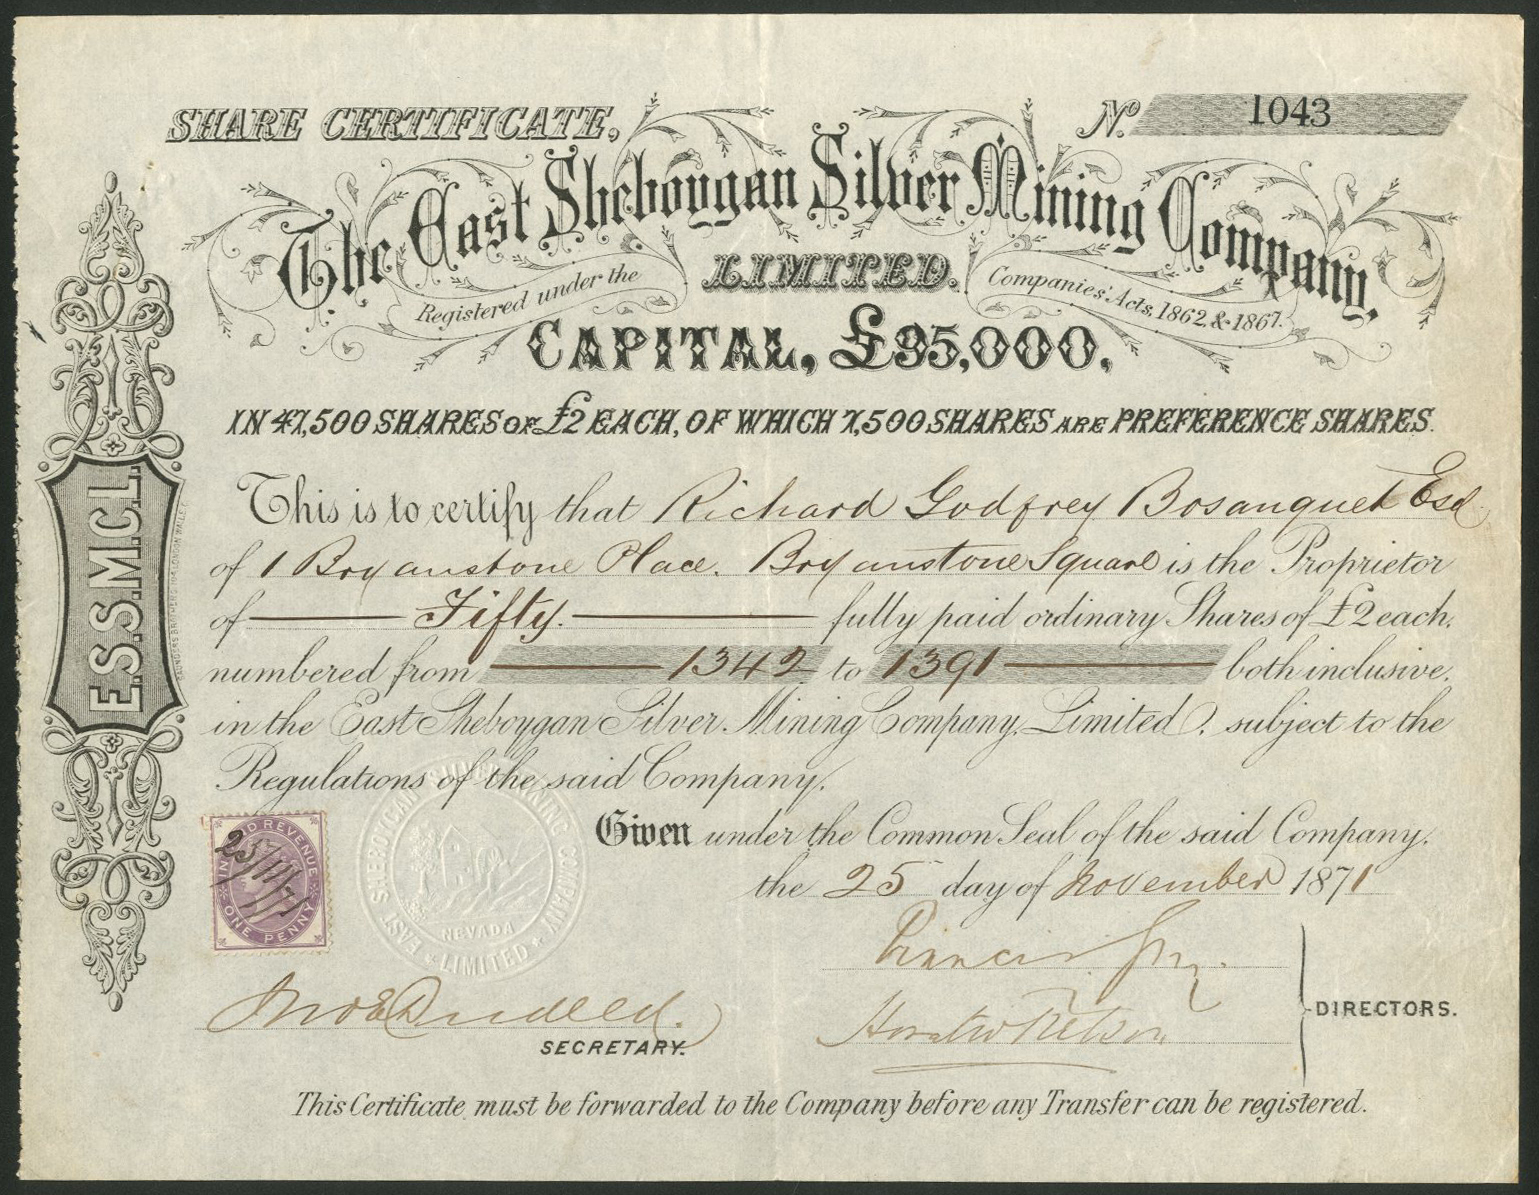 SHARE CERTIFICATE,
No. 1043
The East Sheboygan Silver Mining Company,
LIMITED.
Registered under the Companies' Acts, 1862, & 1867.
CAPITAL, £95,000,
IN 47,500 SHARES OF £2 EACH, OF WHICH 7,500 SHARES ARE PREFERENCE SHARES.
This is to certify that Richard Godfrey Bosanquet Esq
of 1 Bryanstone Place. Bryanstone Square is the Proprietor
of Fifty. fully paid ordinary Shares of £2 each,
numbered from 1342 to 1391 both inclusive,
in the East Sheboygan Silver Mining Company, Limited, subject to the
Regulations of the said Company.
Given under the Common Seal of the said Company,
the 25 day of November 1871
INLAND REVENUE
ONE PENNY
25/11/71
EAST SHEBOYGAN SILVER MINING COMPANY
LIMITED
NEVADA
SECRETARY.
Horatio Nelson
DIRECTORS.
This Certificate must be forwarded to the Company before any Transfer can be registered.
E.S.S.M.C.L.